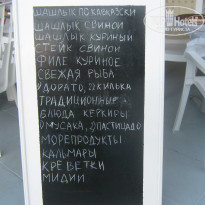 ШАШЛЫК ПО КАВКАЗСКИ
ШАШЛЫК СВИНОЙ
ШАШЛЫК КУРИНЫЙ
СТЕЙК СВИНОЙ
ФИЛЕ КУРИНОЕ
СВЕЖАЯ РЫБА
1) ДОРАТО, 2) КИЛЬКА
ТРАДИЦИОННЫЕ
БЛЮДА КЕРКИРЫ
1) МУСАКА, 2) ПАСТИЦАДО
МОРЕПРОДУКТЫ
КАЛЬМАРЫ
КРЕВЕТКИ
МИДИИ